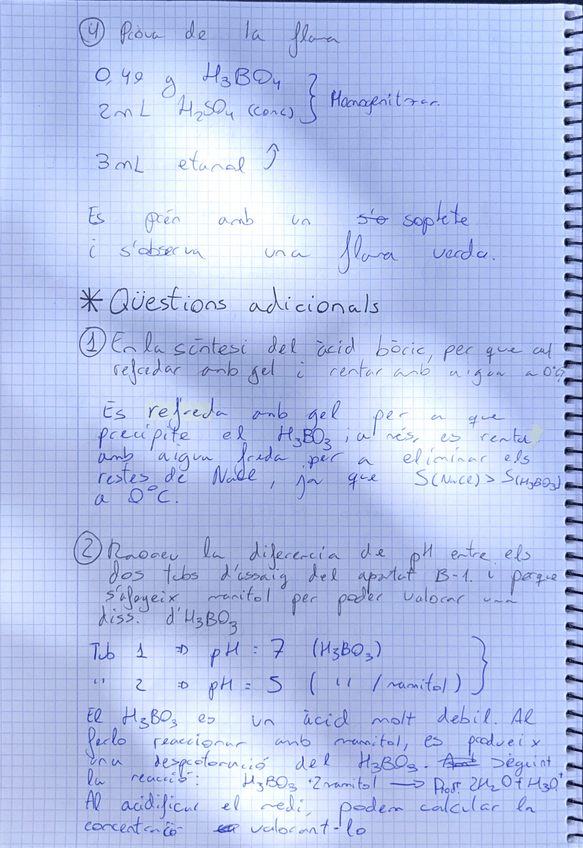 ④ Prova de la flama
0,49 g H3BO4
2mL H2SO4 (conc) } Homogenitzar.
3mL etanol
Es prén amb un soplete
i s'observa una flama verda.
* Qüestions adicionals
① En la síntesi del àcid bòric, per que cal
refredar amb gel i rentar amb aigua a 0º?
Es refreda amb gel per a que
precipite el H3BO3, a més, es renta
amb aigua freda per a eliminar els
restes de NaCl, ja que S(NaCl) > S(H3BO3)
a 0ºC.
② Raoneu la diferencia de pH entre els
dos tubs d'assaig del apartat B-1. i perque
s'afegeix manitol per poder valorar una
diss. d'H3BO3
Tub 1 ⇒ pH = 7 (H3BO3)
" 2 ⇒ pH = 5 ( " /manitol)
El H3BO3 es un àcid molt debil. Al
ferlo reaccionar amb manitol, es produeix
una desprotonació del H3BO3. Seguint
la reacció: H3BO3 + 2manitol → Prod. 2H2O + H3O+
Al acidificar el medi, podem calcular la
concentració valorant-lo